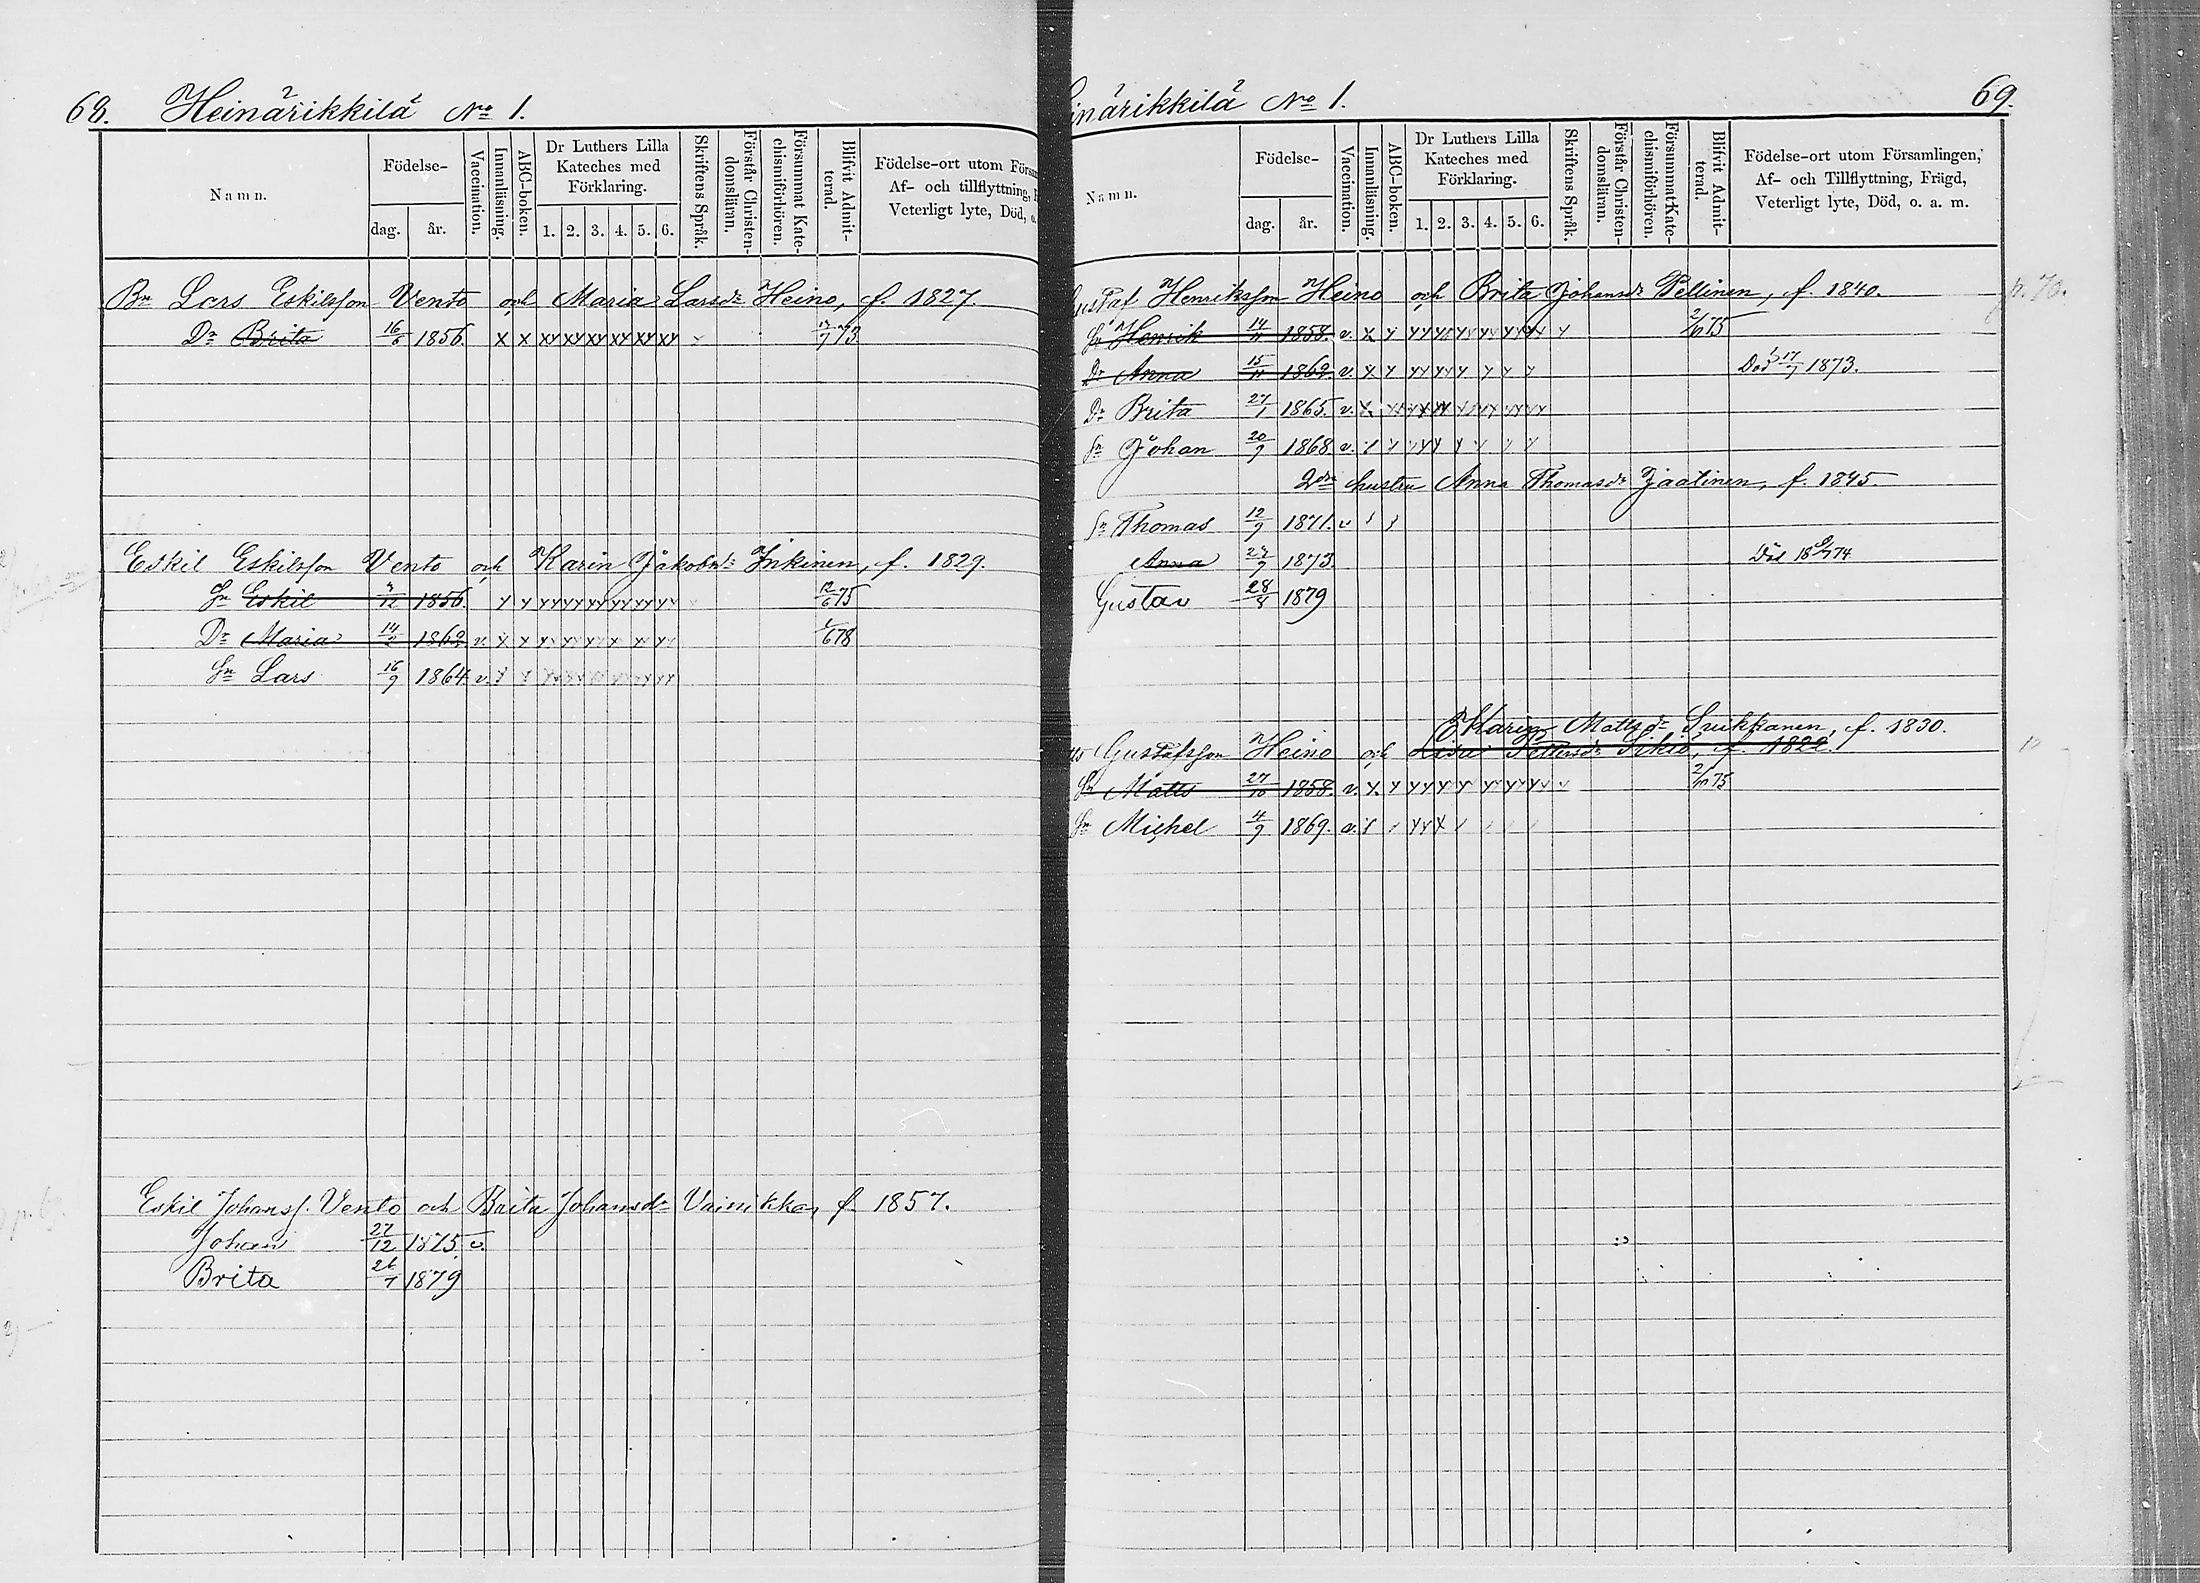 68. Heinärikkilä No 1.
Namn.
Födelse-
dag. år.
Vaccination.
Innanläsning.
ABC-boken.
Dr Luthers Lilla Kateches med Förklaring.
1. 2. 3. 4. 5. 6.
Skriftens Språk.
Förstår Christendomsläran.
Försummat Katechismiförhören.
Blifvit Admitterad.
Födelse-ort utom Försam
Af- och tillflyttning,
Veterligt lyte, Död, o.
Bn Lars Eskilsson Vento och Maria Larsdr Heino, f. 1827
Dr Brita 16/6 1856. x x xx xx xx xx xx xx 73.
Eskil Eskilsson Vento och Karin Jakobsdr Inkinen, f. 1829.
Sn Eskil 1856. x x xx xx xx xx xx xx 12/6 75
Dr Maria 1862 v. x x x 678
Sn Lars 16/9 1864. v. x x
Eskil Johanss. Vento och Brita Johansdr Vainikka, f. 1857.
Johan 27/12 1875 v.
Brita 1879
inärikkilä No 1. 69.
Namn.
Födelse-
dag. år.
Vaccination.
Innanläsning.
ABC-boken.
Dr Luthers Lilla Kateches med Förklaring.
1. 2. 3. 4. 5. 6.
Skriftens Språk.
Förstår Christendomsläran.
Försummat Katechismiförhören.
Blifvit Admitterad.
Födelse-ort utom Församlingen,
Af- och Tillflyttning, Frägd,
Veterligt lyte, Död, o. a. m.
ustaf Henriksson Heino och Brita Johansdr Pellinen, f. 1840. p. 70.
Sn Henrik 1858. v. x x 2/10 75
Dr Anna 1862. v. x x Död 17/7 1873.
Dr Brita 27/1 1865. v. x
Sn Johan 20/9 1868 v. x
2dra hustru Anna Thomasdr Jaatinen, f. 1845.
Sn Thomas 12/9 1871. v
Anna 1873. Död
Gustav 28/8 1879
Karin Mattsdr Suikkanen, f. 1830.
Gustafsson Heino och
Sn Matts 27/10 1858. v. x x 2/10 75
Sn Michel 4/9 1869. v. x